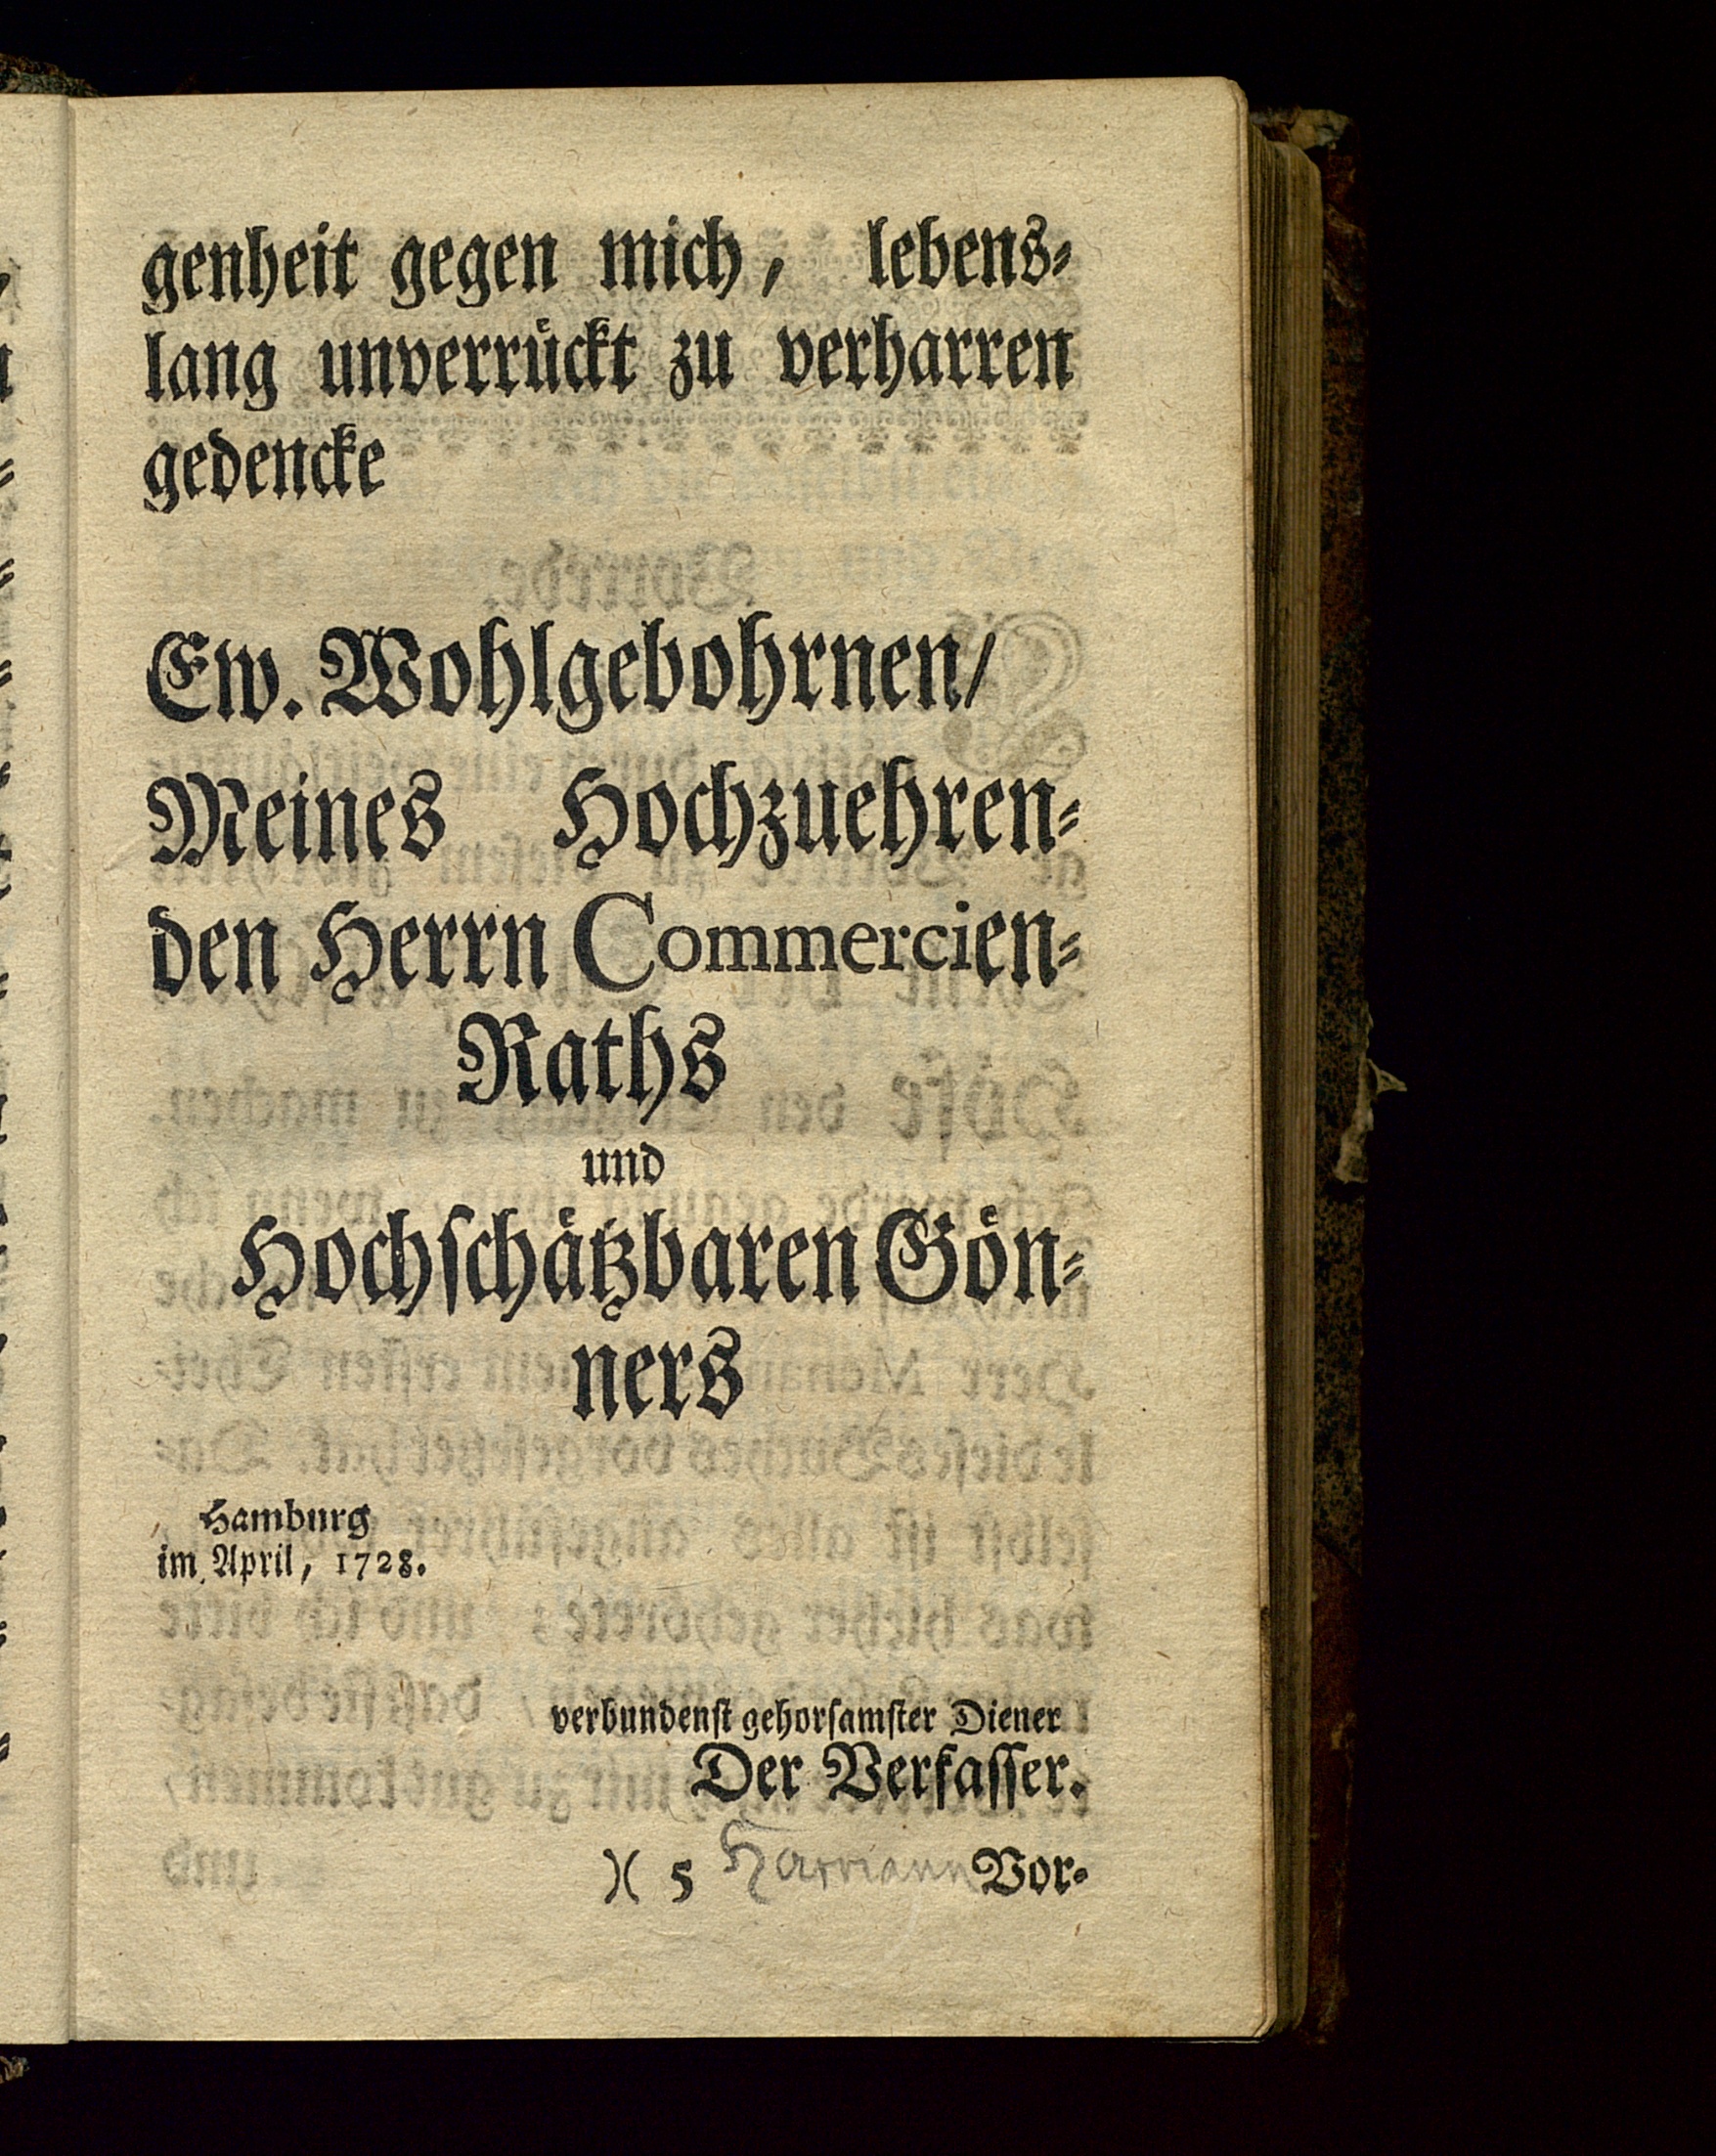 genheit gegen mich, lebens-
lang unverrückt zu verharren
gedencke
Ew. Wohlgebohrnen/
Meines Hochzuehren-
den Herrn Commercien-
Raths
und
Hochschätzbaren Gön-
ners
Hamburg
im April, 1728.
verbundenst gehorsamster Diener
Der Verfasser.
)( 5 Vor-